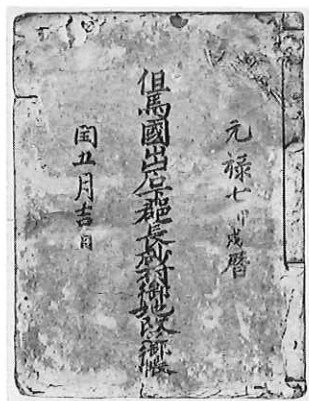 元禄七甲戌暦
但馬國出石郡長砂村御地改御帳
閏五月吉日